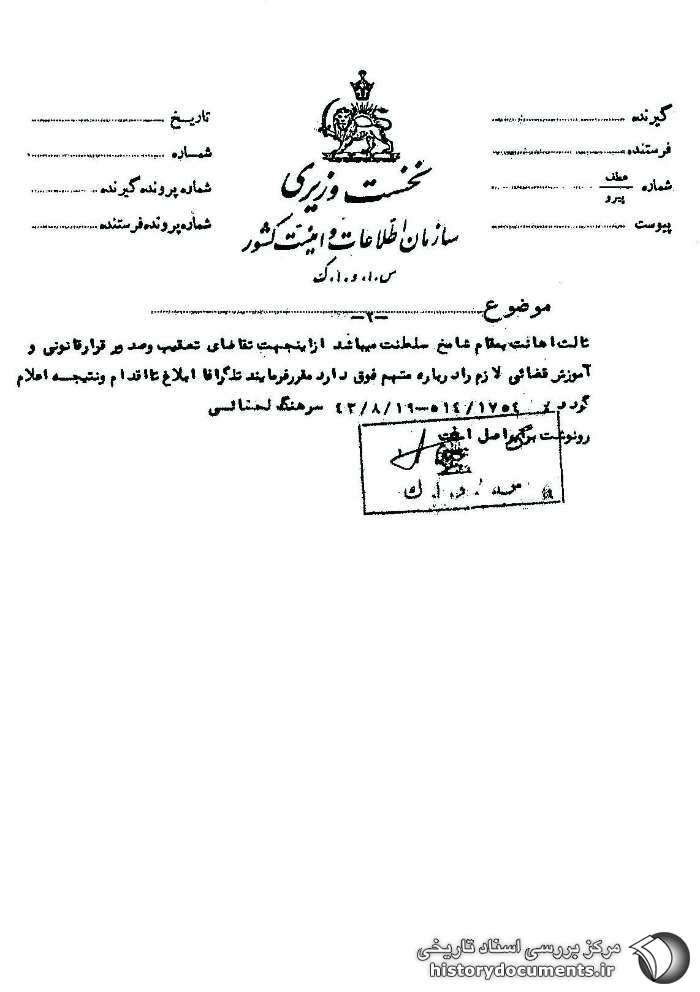 گیرنده
فرستنده
شماره عطف پیرو
پیوست
تاریخ
شماره
شماره پرونده گیرنده
شماره پرونده فرستنده
نخست وزیری
سازمان اطلاعات و امنیت کشور
س.ا.و.ا.ک
موضوع
-۲-
ثالث اهانت بمقام شامخ سلطنت میباشد ازاینجهت تقاضای تعقیب وصدور قرارقانونی و
آموزش قضائی لازم رادرباره متهم فوق دارد مقررفرمایند تلگرافا ابلاغ تااقدام ونتیجه اعلام
گردد ۵۱۴/۱۷۵۴-۴۳/۸/۱۹ سرهنگ
رونوشت برابر اصل است
مرکز بررسی اسناد تاریخی
historydocuments.ir